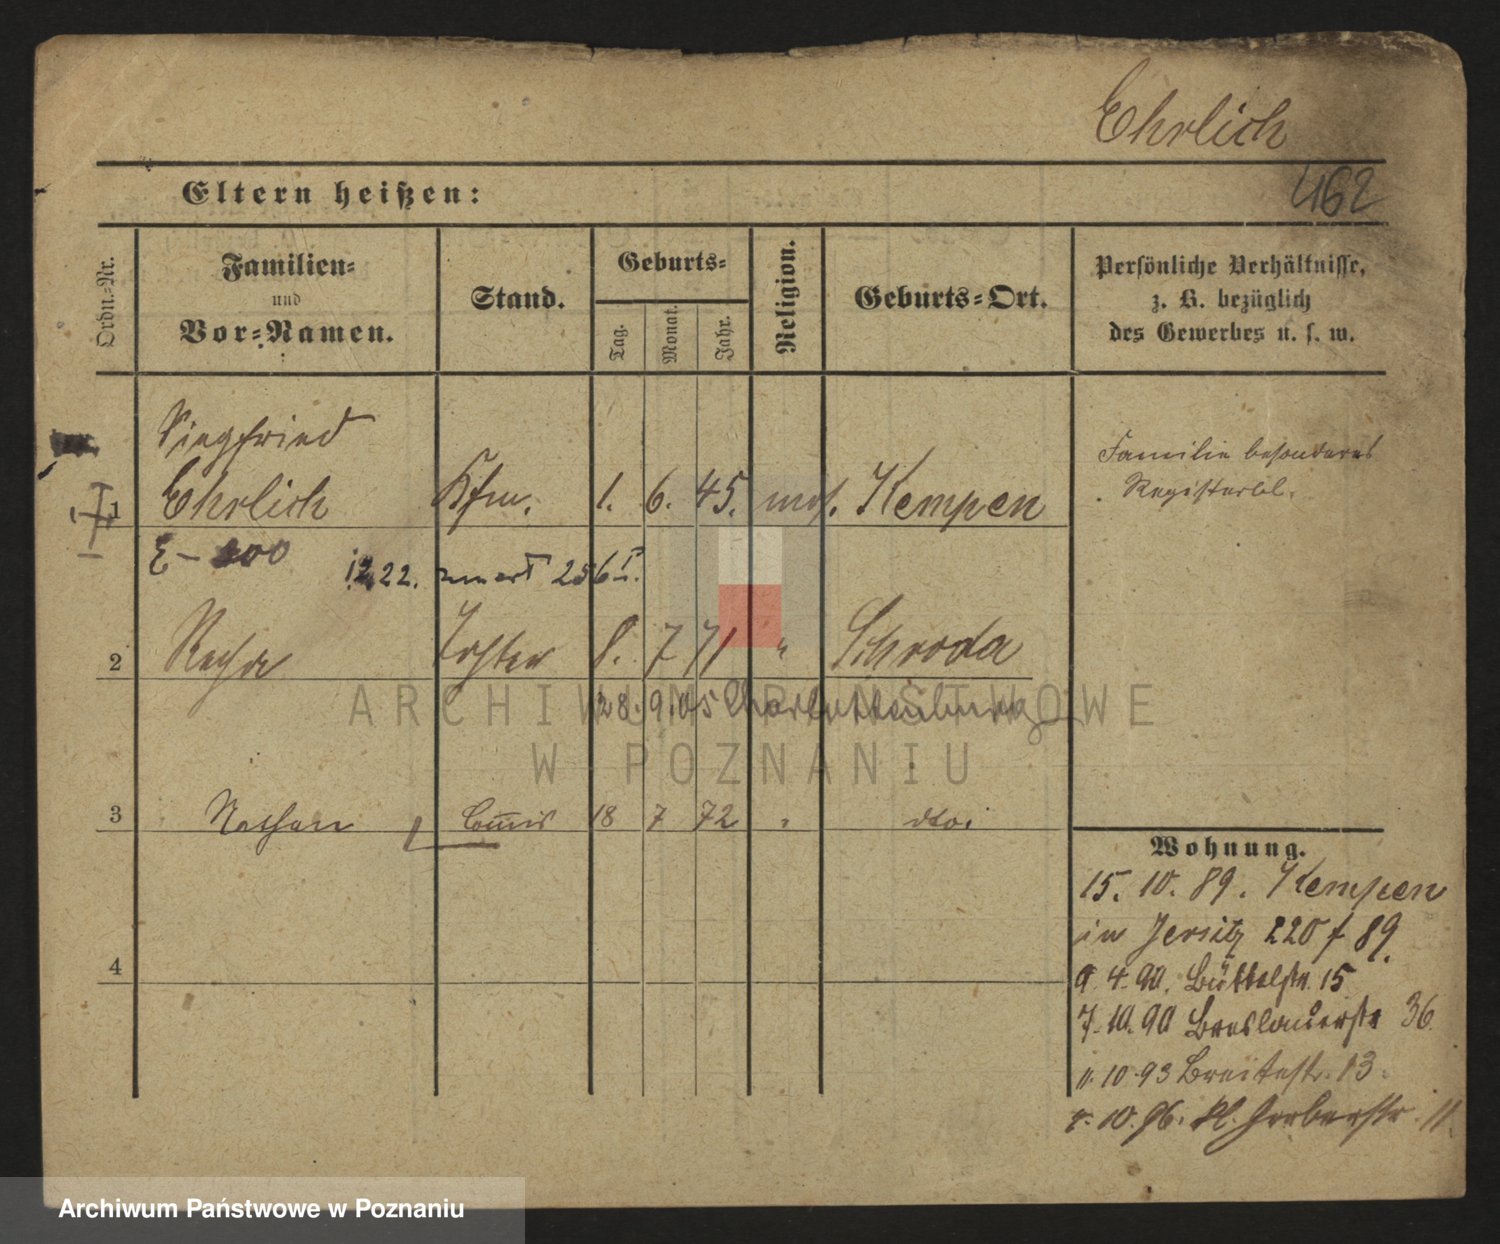 Ehrlich
Eltern heißen:
462
Ordn.-Nr.
Familien-
und
Vor-Namen.
Stand.
Geburts-
Tag.
Monat.
Jahr.
Religion.
Geburts-Ort.
Persönliche Verhältnisse,
z. B. bezüglich
des Gewerbes u. s. w.
Siegfried
1 Ehrlich Kfm. 1. 6. 45. mos. Kempen
Familie besonderes
Registerbl.
E-
12.22.
2 Tochter 8. 7 71 " Schroda
28. 9. 05 Charlottenburg
3 Nathan Commis 18 7 72 " dto.
4
Wohnung.
15. 10. 89. Kempen
in Jersitz 220 f 89.
9. 4. 90. Büttelstr. 15
7. 10. 90 Breslauerstr 36.
11. 10. 93 Breitestr. 13.
10. 96. kl. Gerberstr. 11.
ARCHIWUM PAŃSTWOWE
W POZNANIU
Archiwum Państwowe w Poznaniu